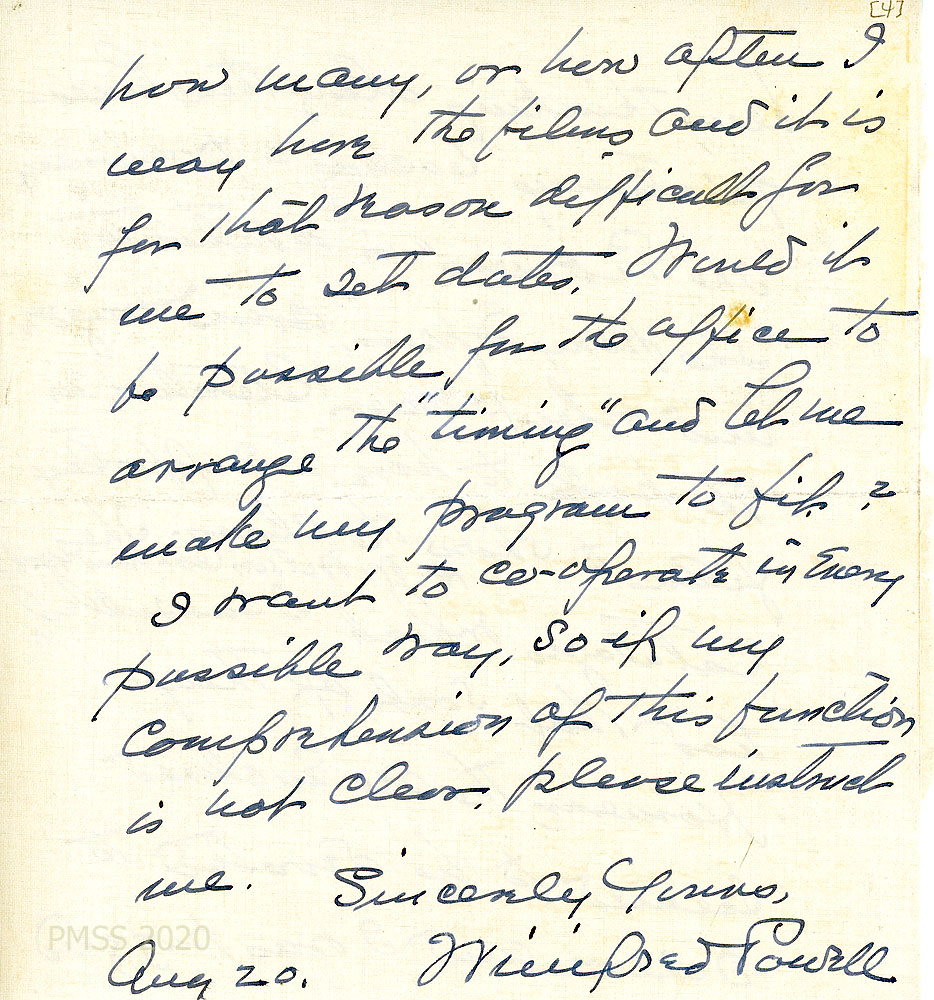 [4]
how many, or how often I
may have the films and it is
for that reason difficult for
me to set dates. Would it
be possible for the office to
arrange the "timing" and let me
make my program to fit?
I want to co-operate in Every
possible way, so if my
Comprehension of this function
is not clear, please instruct
me. Sincerely Yours,
Aug 20. Winifred Powell
PMSS 2020